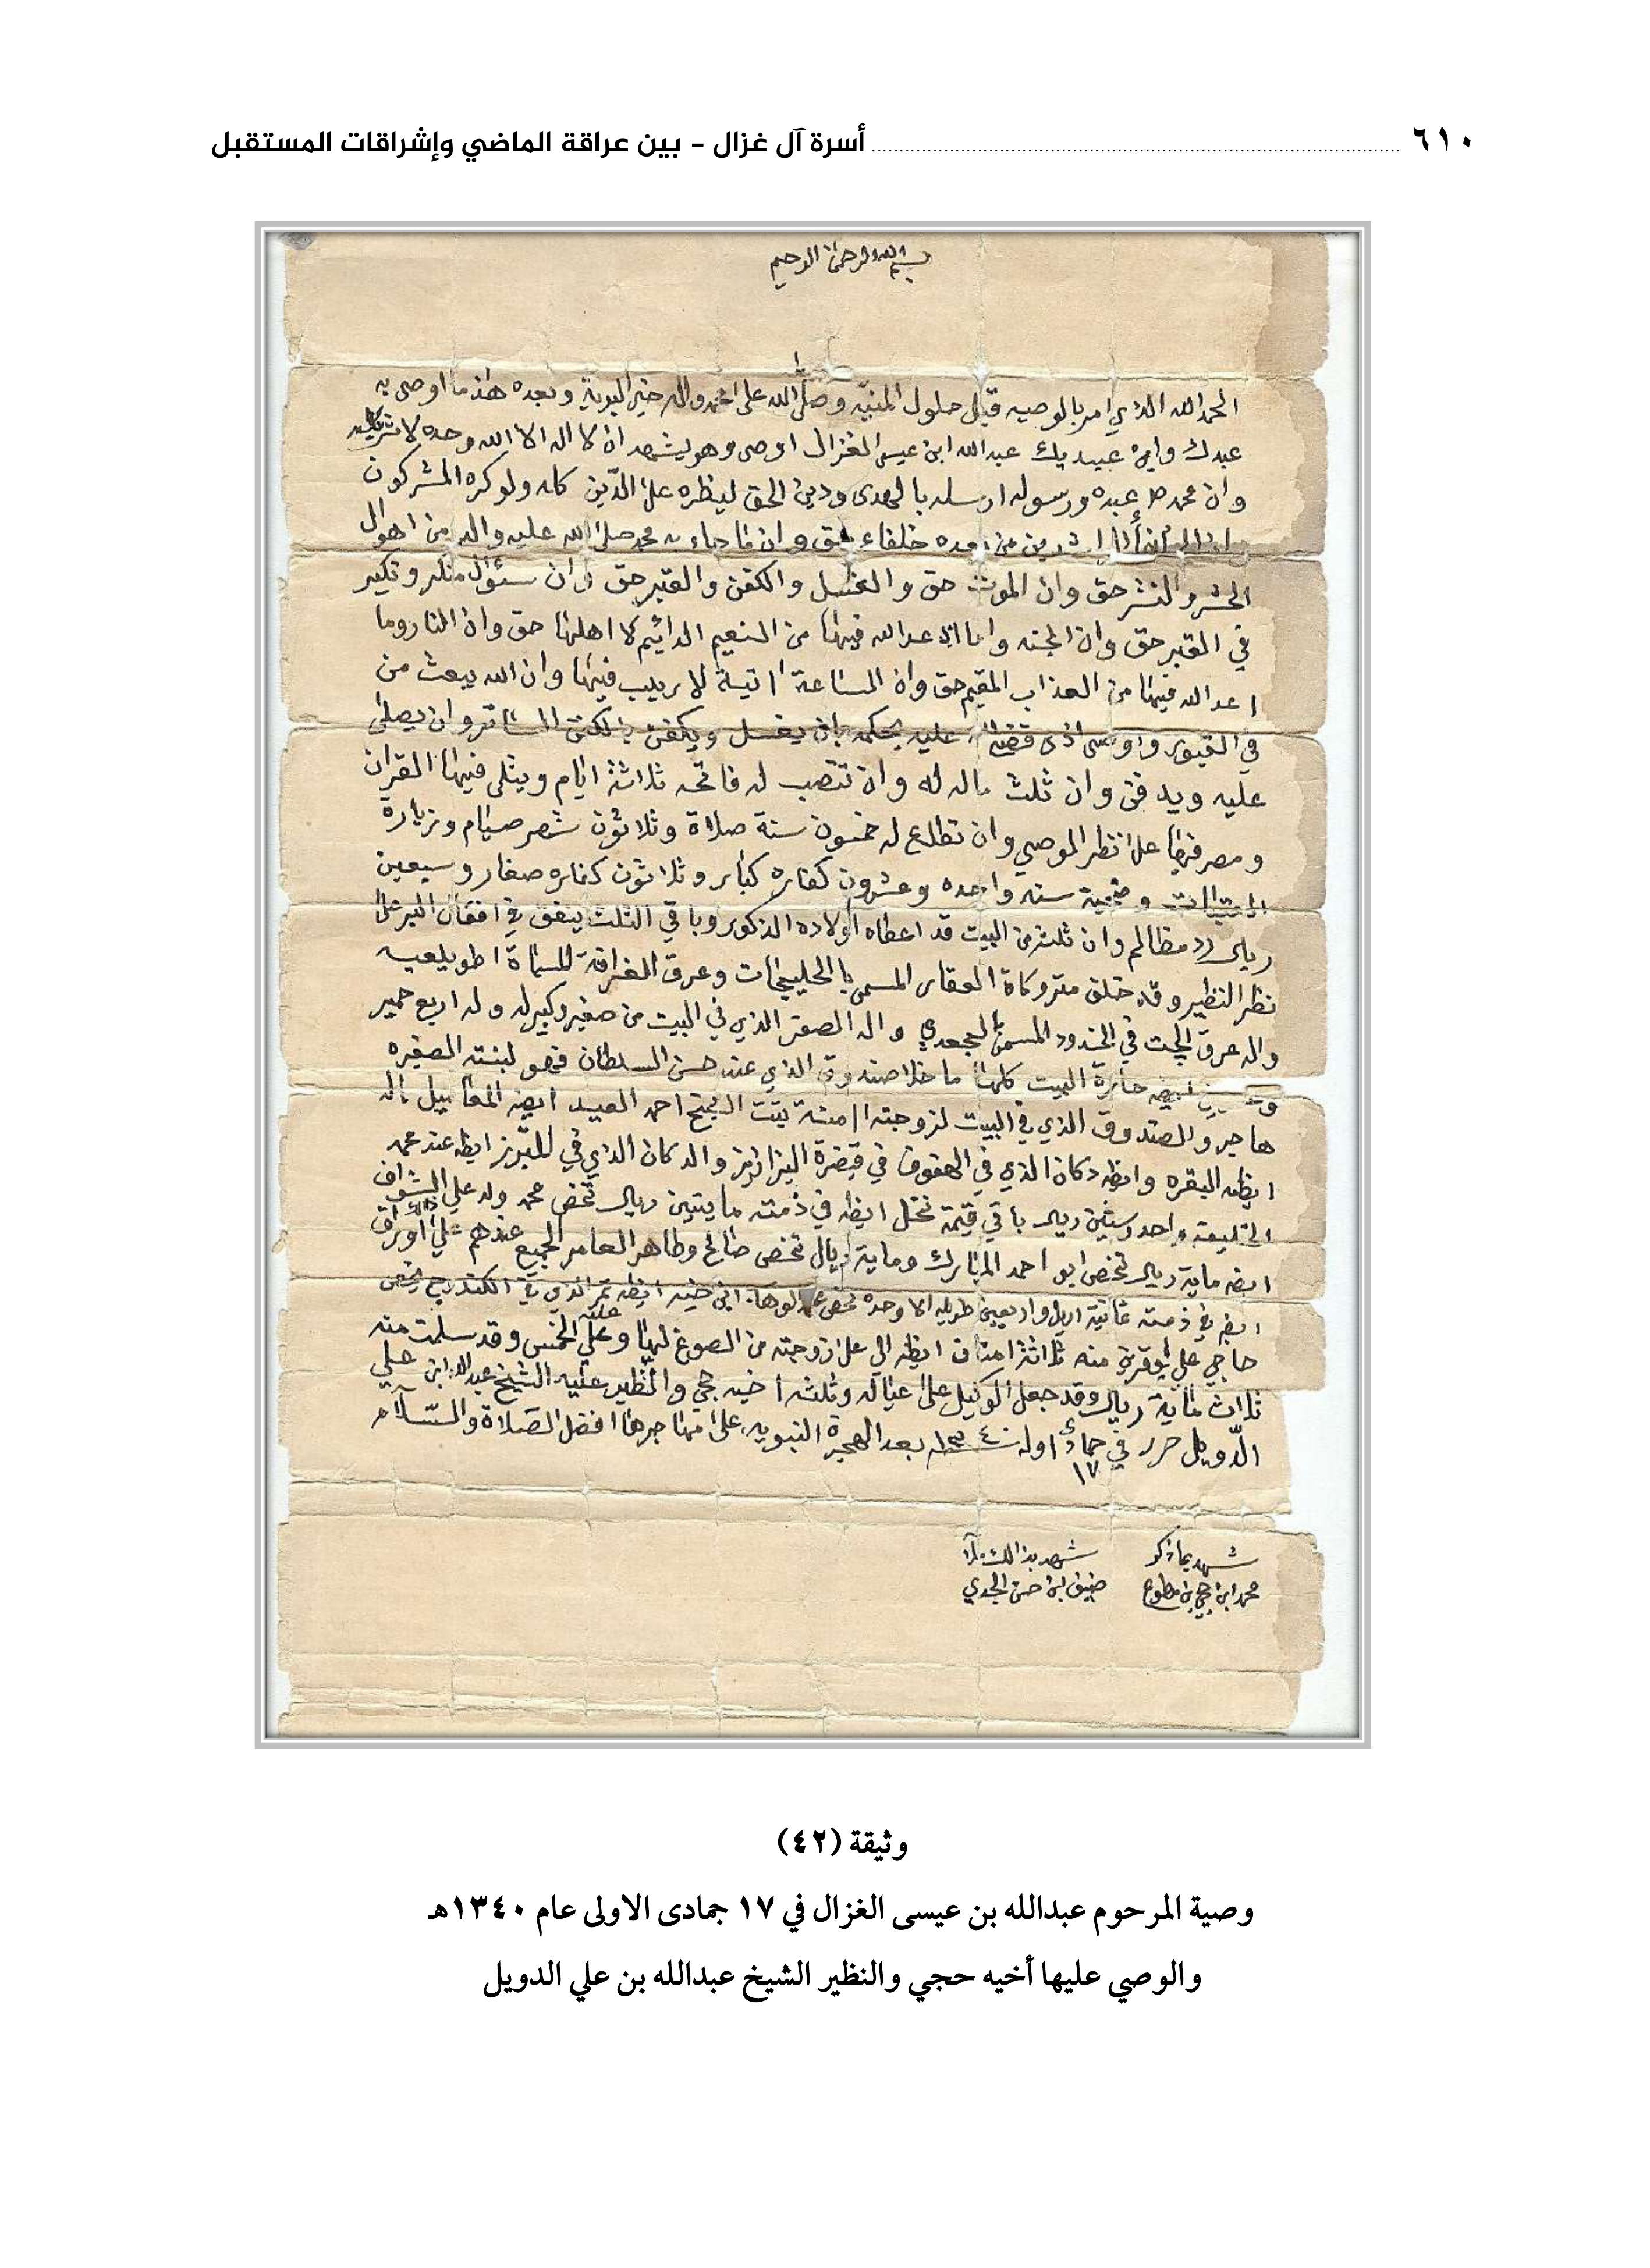 ٦١٠ أسرة آل غزال - بين عراقة الماضي وإشراقات المستقبل
بسم الله الرحمن الرحيم
الحمد الله الذي امر بالوصيه قبل حلول المنيّه وصلى الله على محمد واله خير البرية وبعده هذا ما اوصى به
عبدك وابن عبديك عبدالله ابن عيسى الغزال اوصى وهو يشهد ان لا اله الا الله وحده لا شريك له
وان محمد عبده ورسوله ارسله بالهدى ودين الحق ليظره على الدّين كله ولو كره المشركون
من بعده خلفاء حق وان ما جاء به محمد صلى الله عليه واله من اهوال
الحشر والنشر حق وان الموت حق والغسل والكفن والقبر حق وان سئوال منكر ونكير
في القبر حق وان الجنه وما اعد الله فيها من النعيم الدائيم لا اهلها حق وان النار وما
اعد الله فيها من العذاب المقيم حق وان الساعة اتية لا ريب فيها وان الله يبعث من
في القبور واوصى اذى قضى عليه بحكمه بان يغسل ويكفن بالكفن الساتر وان يصلى
عليه ويدفن وان ثلث ماله له وان تنصب له فاتحه ثلاثة ايام ويتلى فيها القران
ومصرفها على نظر الموصي وان تطلع له خمسون سنة صلاة وثلاثون شهر صيام وزيارة
وضحية سنه واحده وعشرون كفاره كبار وثلاثون كفاره صغار وسبعين
ريال رد مظالم وان ثلث من البيت قد اعطاه اولاده الذكور وباقي الثلث ينفق في افعال البر على
نظر النظير وقد خلف متروكاة العقار المسمى بالحليجات وعرق الغرافة المسماة اطويلعيه
واله عرق الجت في الخدود المسمى بالجعدي واله الصفر الذي في البيت من صغير وكبير له وله اربع حمير
ايضه حلرة البيت كلها ما خلا صندوق الذي عند حسن السلطان فهو لبنته الصغيره
هاجر والصندوق الذي في البيت لزوجته امنة بنت الحجي احمد العبيد ايضه المقابيل اله
ايظه البقره وايظه دكان الذي في الهفوف في قيضرة البزازيز والدكان الذي في المبرز ايظه عند محمد
الخليفه واحد وستين ريال باقي قيمة نخل ايظه في ذمته مايتين ريال تخص محمد ولد علي الشواف
ايضه ماية ريال تخص ابو احمد المبارك وماية ريال تخص صالح وطاهر العامر الجميع عندهم على اوراق
ايضه في ذمته ثمانية اريل واربعين طويله الا وحده تخص ايظه تمر الذي في
حاجي علي بوقرين منه ثلاثة امنان ايظه الي على زوجته من الصوغ لها وعلي الخمس وقد سلمت منه
ثلاث ماية ريال وقد جعل الوكيل على عياله وثلثه اخيه حجي والنظير عليه الشيخ عبدالله ابن علي
الدّويل حرر في جمادى اوله ١٣٤٠ بعد الهجرة النبويه على مهاجرها افضل الصلاة والسّلام
١٧
شهد بما ذكر
محمد ابن حجي بن مطوع
شهد بذالك ملا
ضيف ابن حسن الجدي
وثيقة (٤٢)
وصية المرحوم عبدالله بن عيسى الغزال في ١٧ جمادى الاولى عام ١٣٤٠هـ
والوصي عليها أخيه حجي والنظير الشيخ عبدالله بن علي الدويل